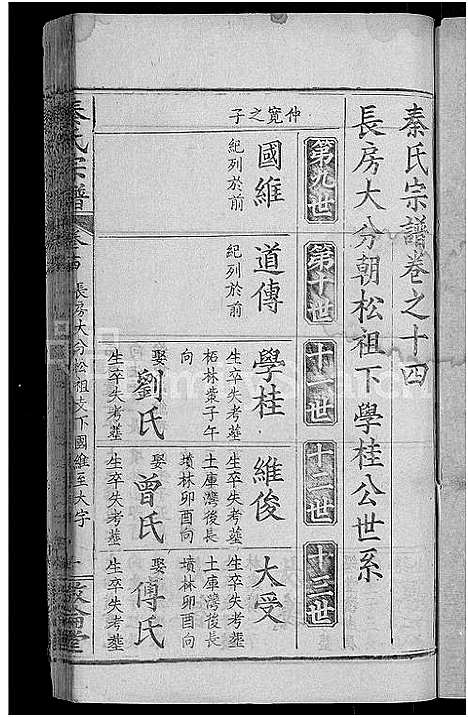 秦氏宗譜卷之十四
長房大分朝松祖下學桂公世系
第九世
第十世
十一世
十二世
十三世
仲寬之子
國維
紀列於前
道傳
紀列於前
學桂
生卒失考塟
柘林棗子午
向
娶劉氏
生卒失考塟
維俊
生卒失考塟
土庫灣後長
墳林卯酉向
娶曾氏
生卒失考塟
大受
生卒失考塟
土庫灣後長
墳林卯酉向
娶傅氏
生卒失考塟
秦氏宗譜
長房大分松祖支下國維至大字
一